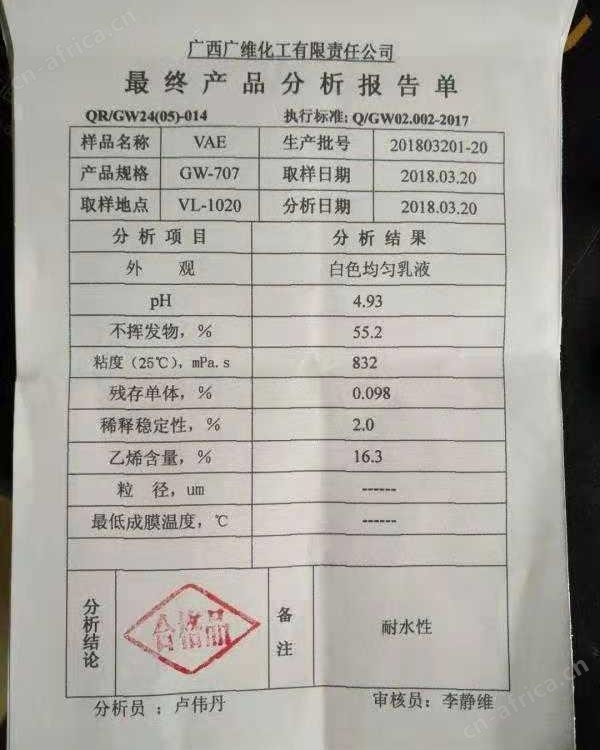 广西广维化工有限责任公司
最终产品分析报告单
QR/GW24(05)-014 执行标准: Q/GW02.002-2017
样品名称 VAE 生产批号 201803201-20
产品规格 GW-707 取样日期 2018.03.20
取样地点 VL-1020 分析日期 2018.03.20
分析项目 分析结果
外 观 白色均匀乳液
pH 4.93
不挥发物，% 55.2
粘度（25℃），mPa.s 832
残存单体，% 0.098
稀释稳定性，% 2.0
乙烯含量，% 16.3
粒 径，um ------
最低成膜温度，℃ ------
分析结论 合格品 备注 耐水性
分析员：卢伟丹 审核员：李静维
cn-africa.cn
cn-africa.cn